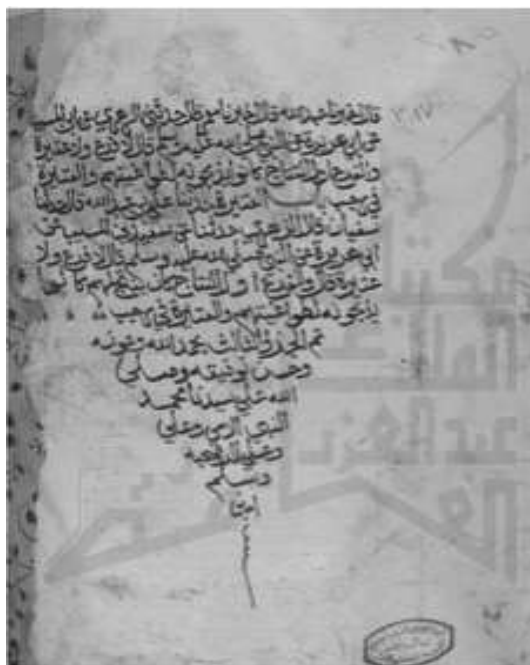 قال اخبرنا عبد الله قال اخبرنا معمر قال حدثني الزهري عن ابن المسيب
عن ابي هريرة عن النبي صلى الله عليه وسلم قال لا فرع ولا عتيرة
والفرع اول النتاج كانوا يذبحونه لطواغيتهم والعتيرة
في رجب باب العتيرة حدثنا علي بن عبد الله قال حدثنا
سفيان قال الزهري حدثنا عن سعيد بن المسيب عن
ابي هريرة عن النبي صلى الله عليه وسلم قال لا فرع ولا
عتيرة قال والفرع اول النتاج كان ينتج لهم كانوا
يذبحونه لطواغيتهم والعتيرة في رجب
تم الجزء الثالث بحمد الله وعونه
وحسن توفيقه وصلى
الله على سيدنا محمد
النبي الامي وعلى
وعلى اله وصحبه
وسلم
امين
مكتبة
الملك
عبد العزيز
العامة